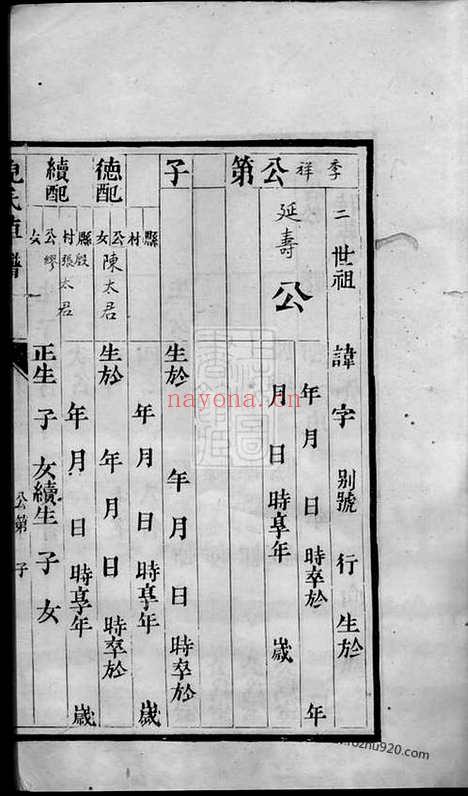 季祥公第 子
二世祖 諱 字 別號 行 生於
年 月 日 時卒於 年
延壽公 月 日 時享年 歲
生於 年 月 日 時卒於
縣 村 年 月 日 時享年 歲
德配 公女 陳太君 生於 年 月 日 時卒於
縣 村 張太君 年 月 日 時享年 歲
續配 公 女 繆 正生 子 女續生 子 女
公第 子
nayona.cn